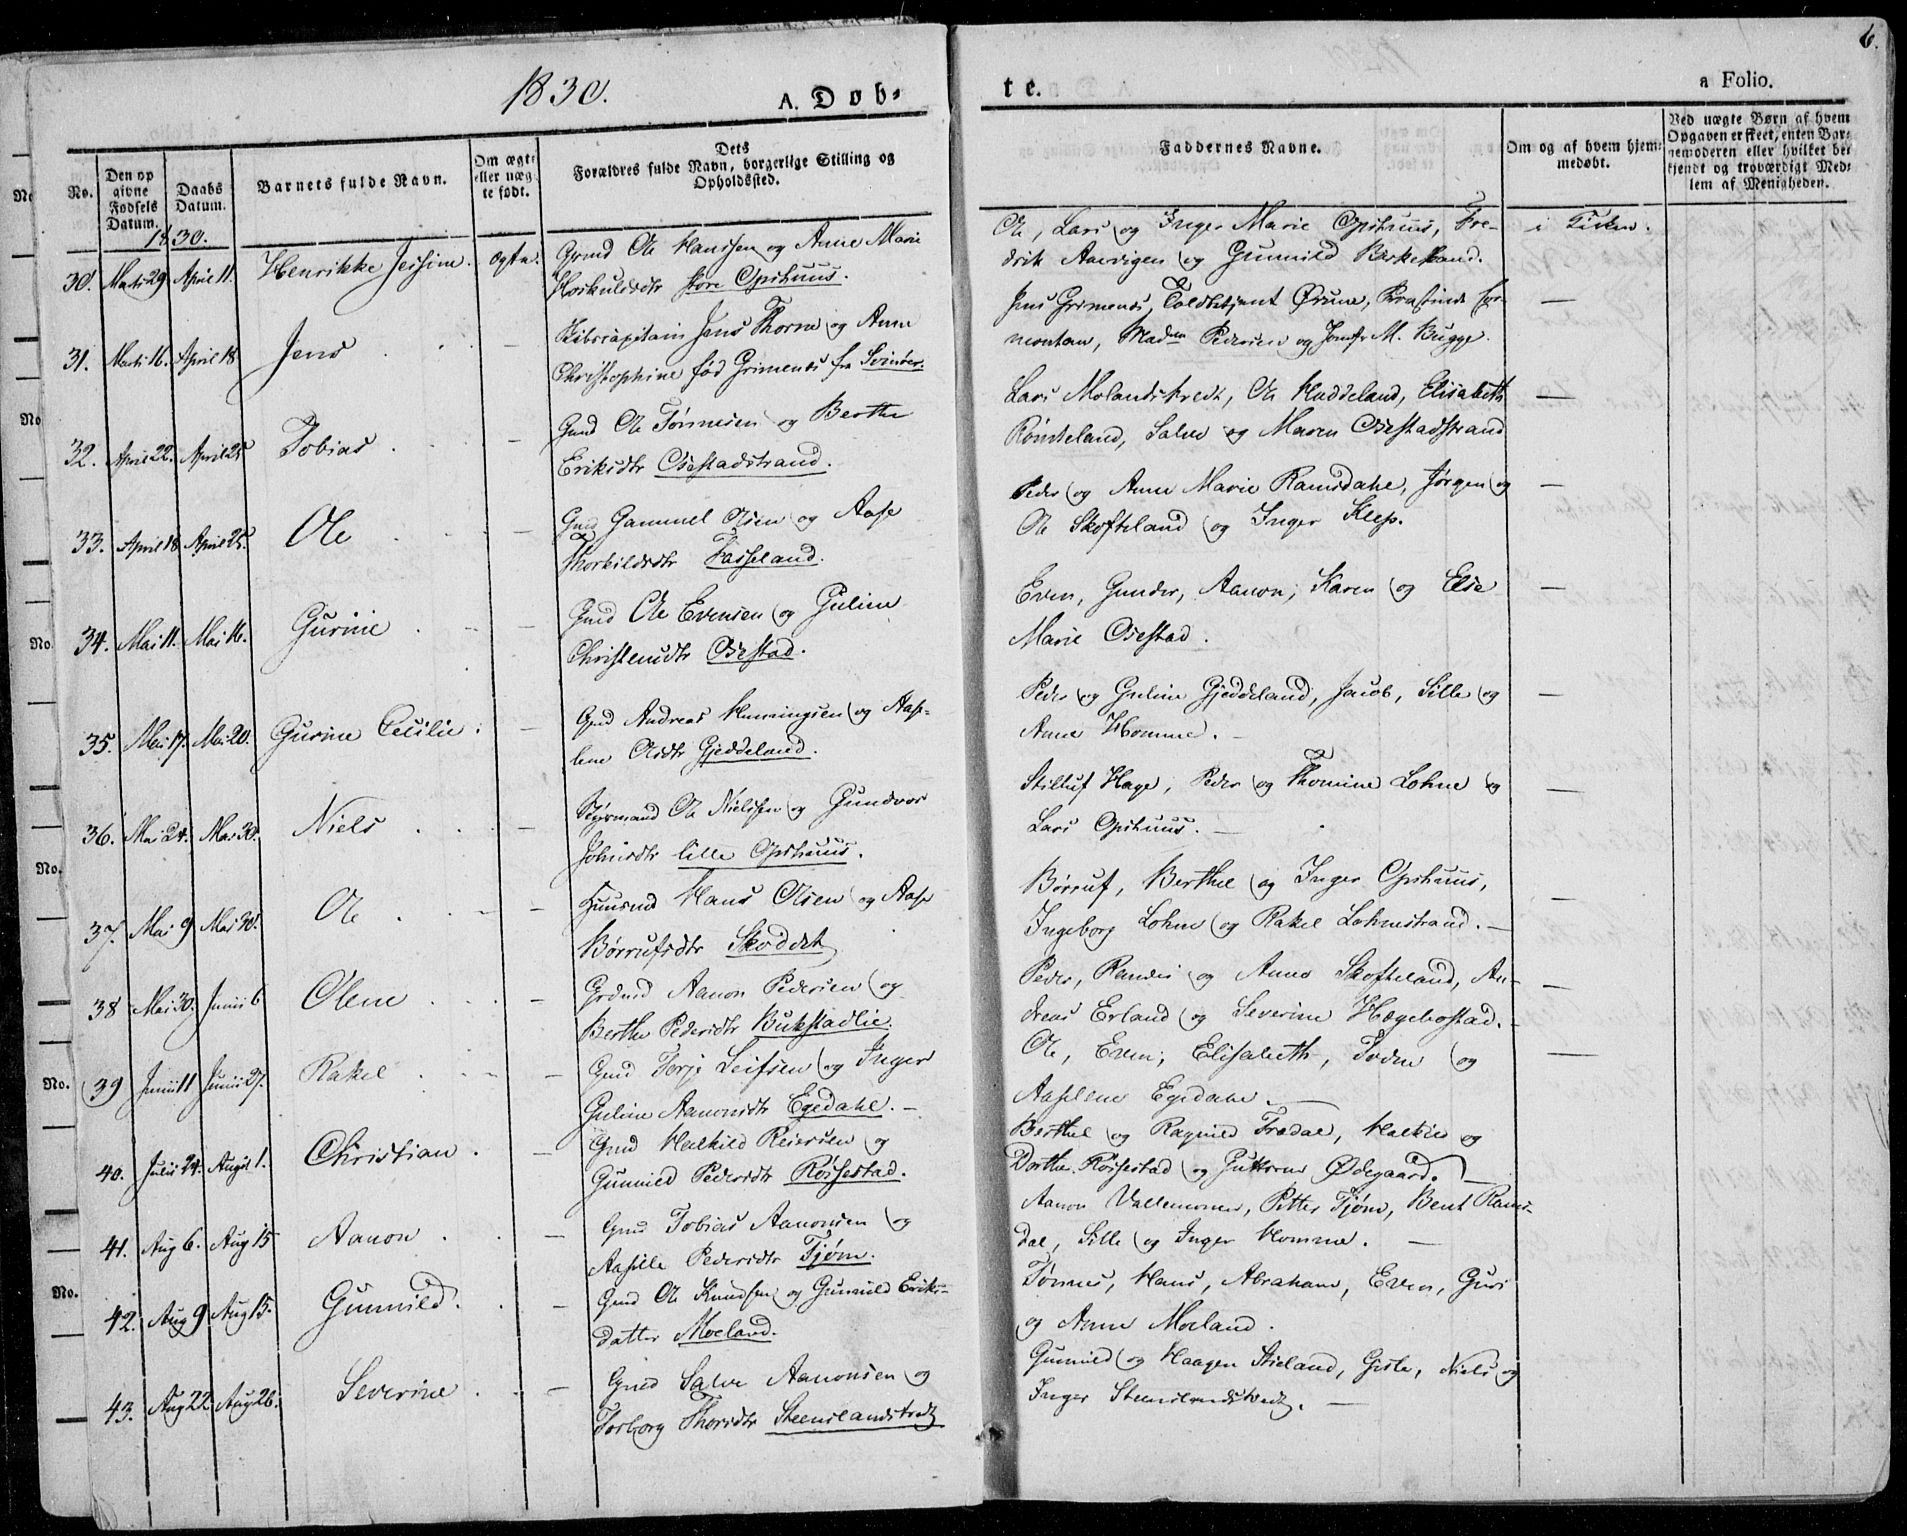 1830.
A. Døb-
No.
Den op
givne
Fødsels
Datum.
Daabs
Datum.
Barnets fulde Navn.
Om ægte
eller uæg-
te født.
Dets
Forældres fulde Navn, borgerlige Stilling og
Opholdssted.
1830.
30. Marti 29. April 11. Henrikke Jessine. ægte. Gmd Ole Hanssen og Anne Marie
Horkuldsdtr store Opshuus.
31. Marti 16. April 18. Jens . . - Skibscapitain Jens Thorne og Anne
Christophine fød Grimenes fra Svinøer.
32. April 22. April 25 Tobias . . - Gmd Ole Tønnesen og Berthe
Eriksdtr Osestadstrand.
33. April 18 April 25. Ole . . - Gmd Gammel Olsen og Aase
Thorkildsdtr Fasseland.
34. Mai 11. Mai 16. Gurine . - - Gmd Ole Evensen og Guline
Christensdtr Osestad.
35. Mai 17. Mai 20. Gurine Cecilie . - Gmd Andreas Henningsen og Aase-
lene Olsdtr Gjeddeland.
36. Mai 24. Mai 30. Niels . . - Styrmand Ole Nielssen og Gundvor
Johnsdtr lille Opshuus.
37. Mai 9 Mai 30. Ole . - - Huusmd Hans Olsen og Aase
Børrufsdtr Skoddet
38 Mai 30. Junii 6 Olene . . - Grdmd Aanon Pedersen og
Berthe Pedersdtr Bukstadlie.
39 Junii 11 Junii 27. Rakel . . - Gmd Torje Leifsen og Inger
Guline Aanonsdtr Egedahl. -
40. Julii 24. Augst 1. Christian . - Gmd Halkild Reiersen og
Gunnild Pedersdtr Røssestad.
41. Aug 6. Aug 15 Aanon . . - Gmd Tobias Aanonsen og
Aasille Pedersdtr Tjøm.
42. Aug 9 Aug 15. Gunnild . . - Gmd Ole Knudsen og Gunnild Eriks-
datter Moeland.
43. Aug 22. Aug 26. Severine . . - Gmd Salve Aanonsen og
Torborg Thorsdtr Steenslandsqvedt
6.
te.
a Folio.
Faddernes Navne.
Om og af hvem hjem-
medøbt.
Ved uægte Børn af hvem
Opgaven er skeet, enten Bar-
nemoderen eller hvilket be-
kjendt og troværdigt Med-
lem af Menigheden.
Ole, Lars og Inger Marie Opshuus, Fre- i Kirken.
drik Aavigen og Gunnild Birkeland.
Jens Grimenes, Toldbetjent Ørune, —
Madme Pedersen og Jomfr M. Bugge.
Lars Molandsqvedt, Ole Haddeland, Elisabeth —
Rømteland, Salve og Maren Osestadstrand
Peder og Anne Marie Ramsdahl, Jørgen og —
Ole Skofteland og Inger Klep.
Even, Gunder, Aanon, Karen og Else —
Marie Osestad.
Peder og Guline Gjeddeland, Jacob, Sille og —
Anne Homme. -
Peder og Thomine Lohne og —
Lars Opshuus. -
Børruf, Berthel og Inger Opshuus, —
Ingeborg Lohne og Rakel Lohnestrand. -
Peder, Randi og Anne Skofteland, An- —
dreas Erland og Severine Hægebostad. -
Ole, Even, Elisabeth, og —
Aaslene Egedahl. -
Berthel og Ragnild Tredal, Halkild og
Dorthe Røssestad og Guttorm Ødegaard. —
Aanon Vallemoen, Petter Tjøm, Bent Rams-
dal, Sille og Inger Homme. —
Tønnes, Hans, Abraham, Even, Guri
og Anne Moeland.
Gunnild og Haagen Stieland, Gitle, Niels og
Inger Steenslandsqvedt. -